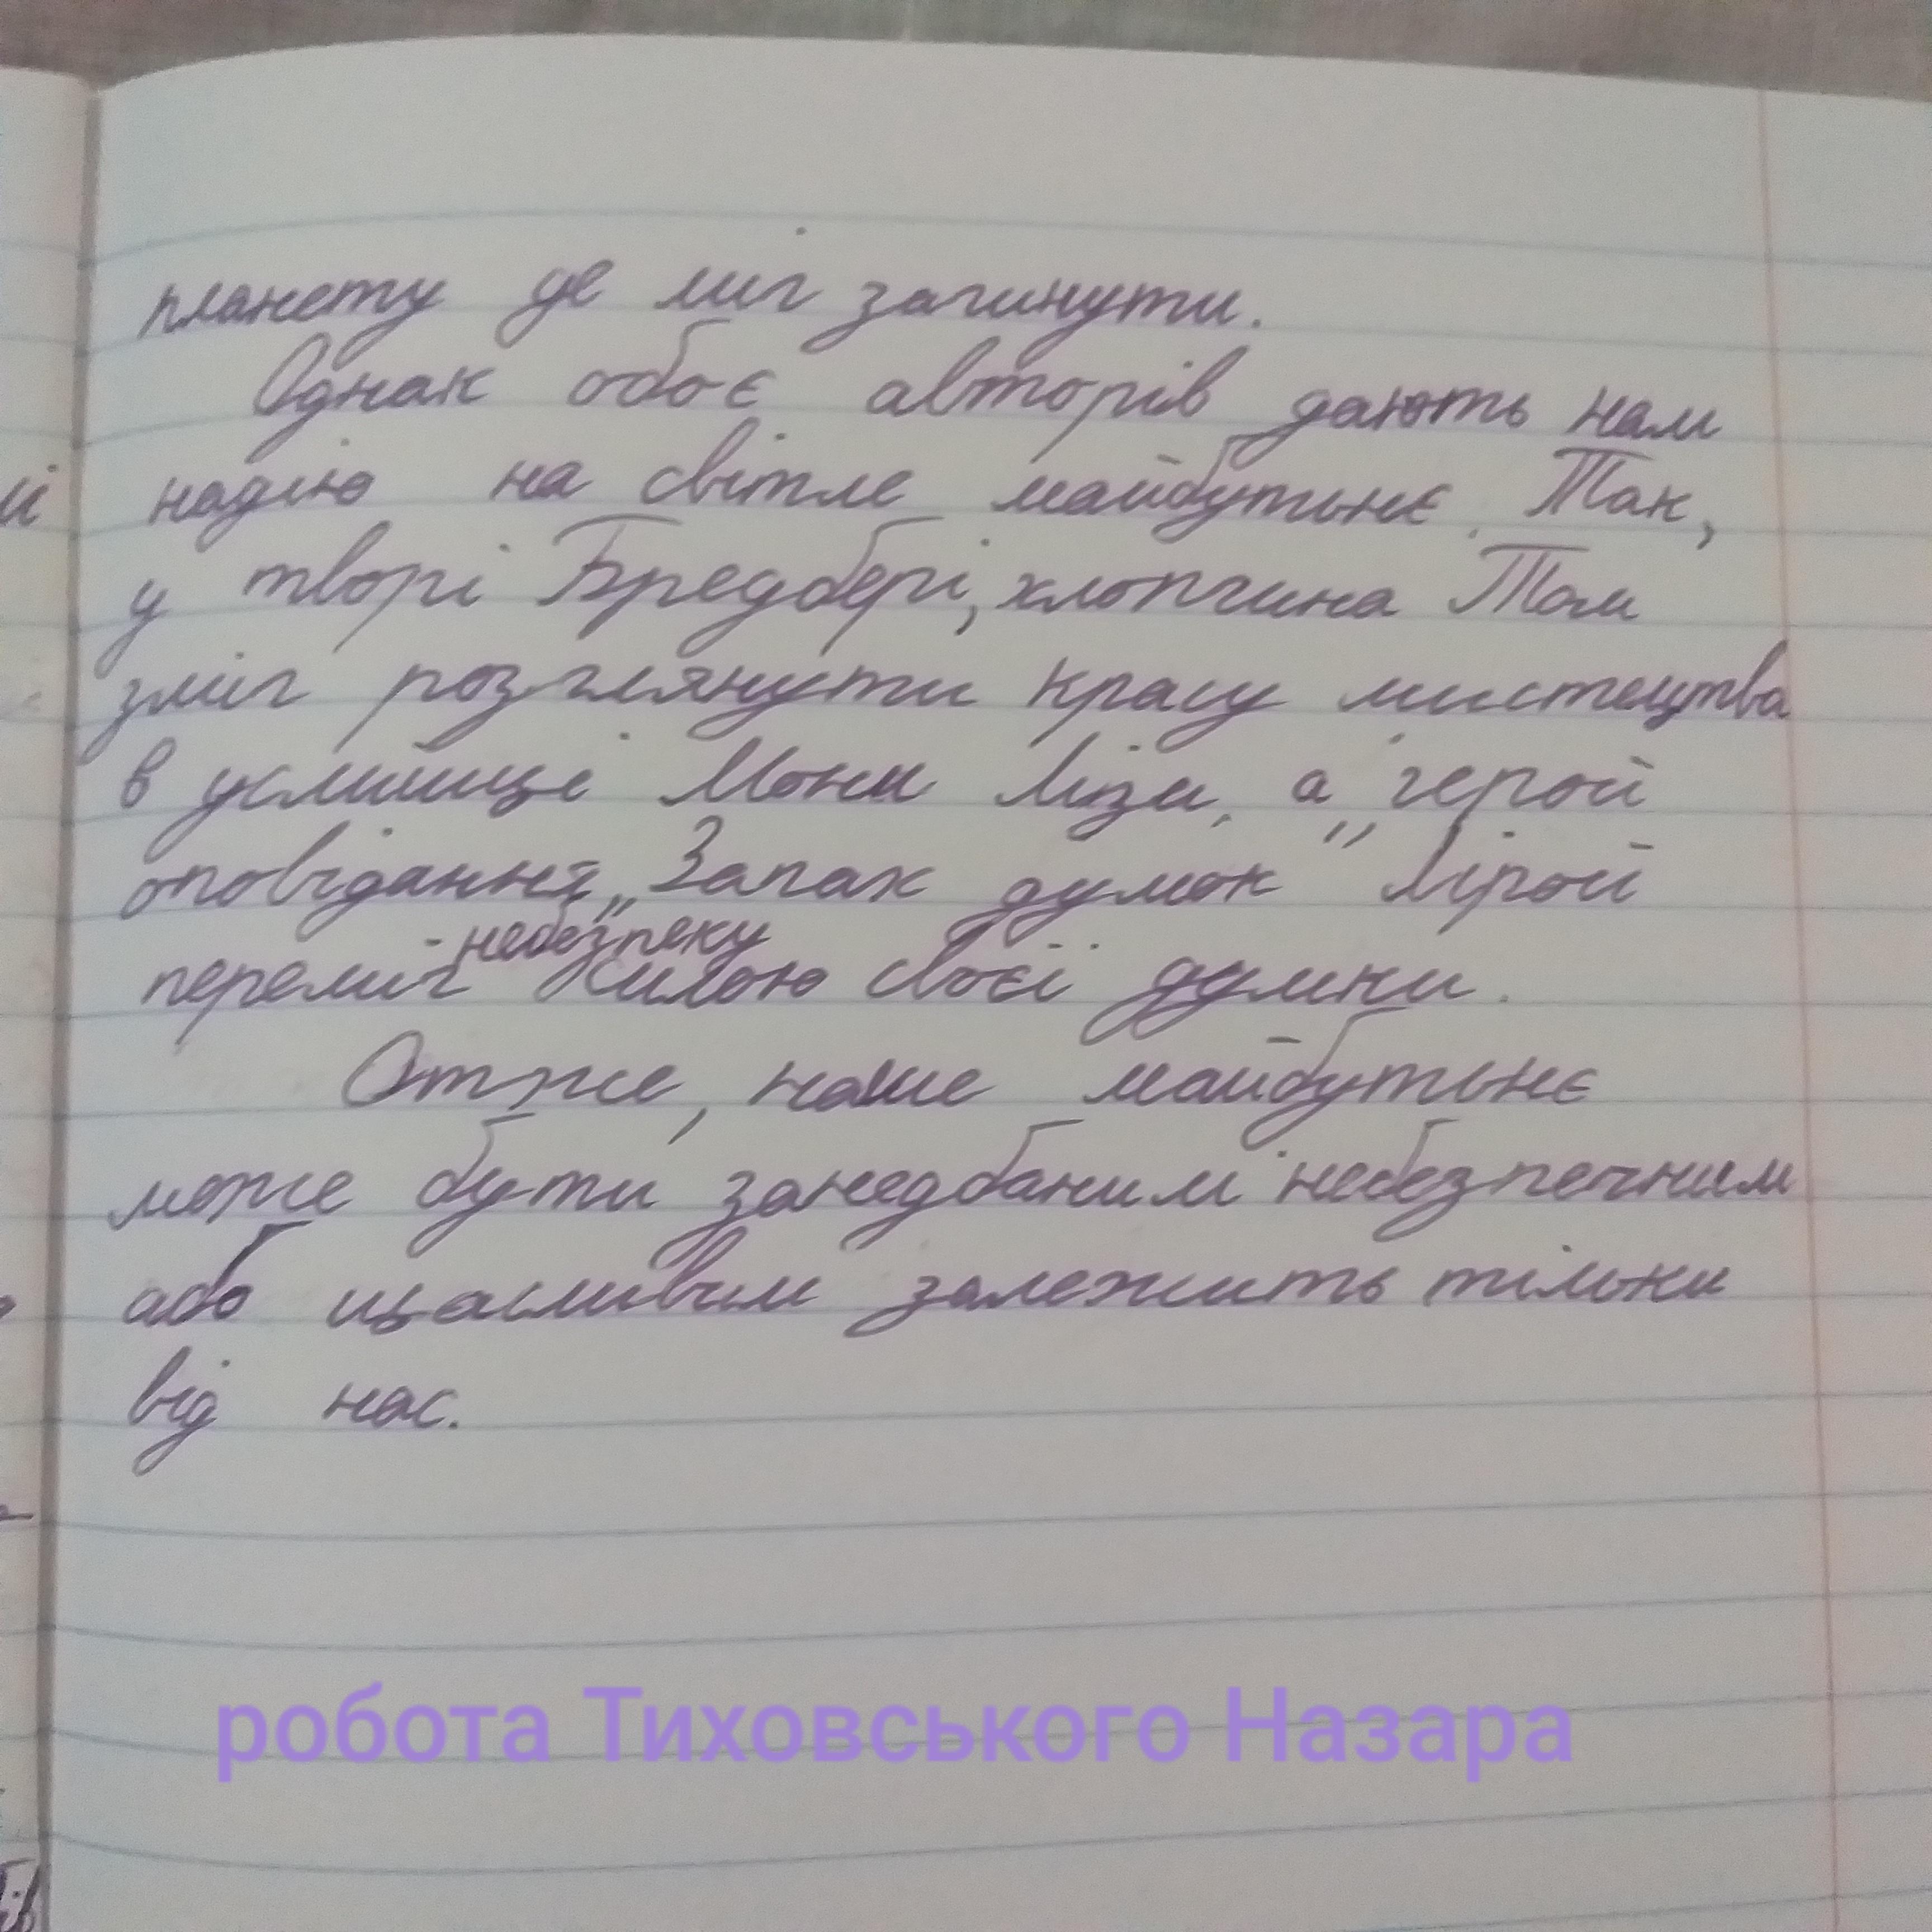 планету де міг загинути.
Однак обоє авторів дають нам
надію на світле майбутьнє. Так,
у творі Бредбері, хлопчина Том
зміг розглянути красу мистецтва
в усмішці Мони Лізи, а герой
оповідання „Запах думок" Лірой
небезпеку
переміг силою своєї думки.
Отже, наше майбутьнє
може бути занедбаним небезпечним
або щасливим залежить тільки
від нас.
робота Тиховського Назара